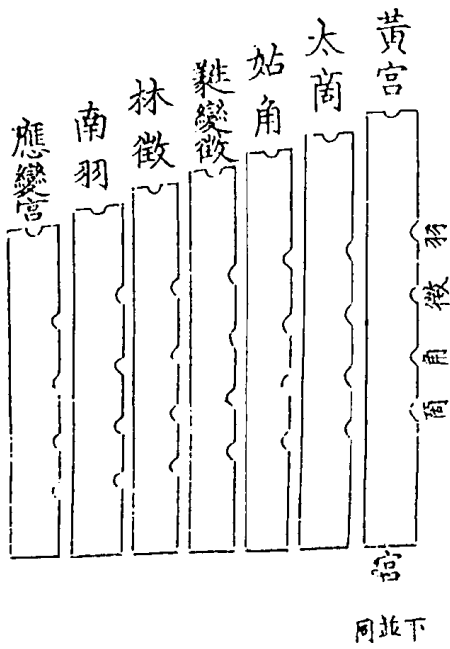 黃宮
太商
姑角
蕤變徵
林徵
南羽
應變宮
羽
徵
角
商
宮
下並同